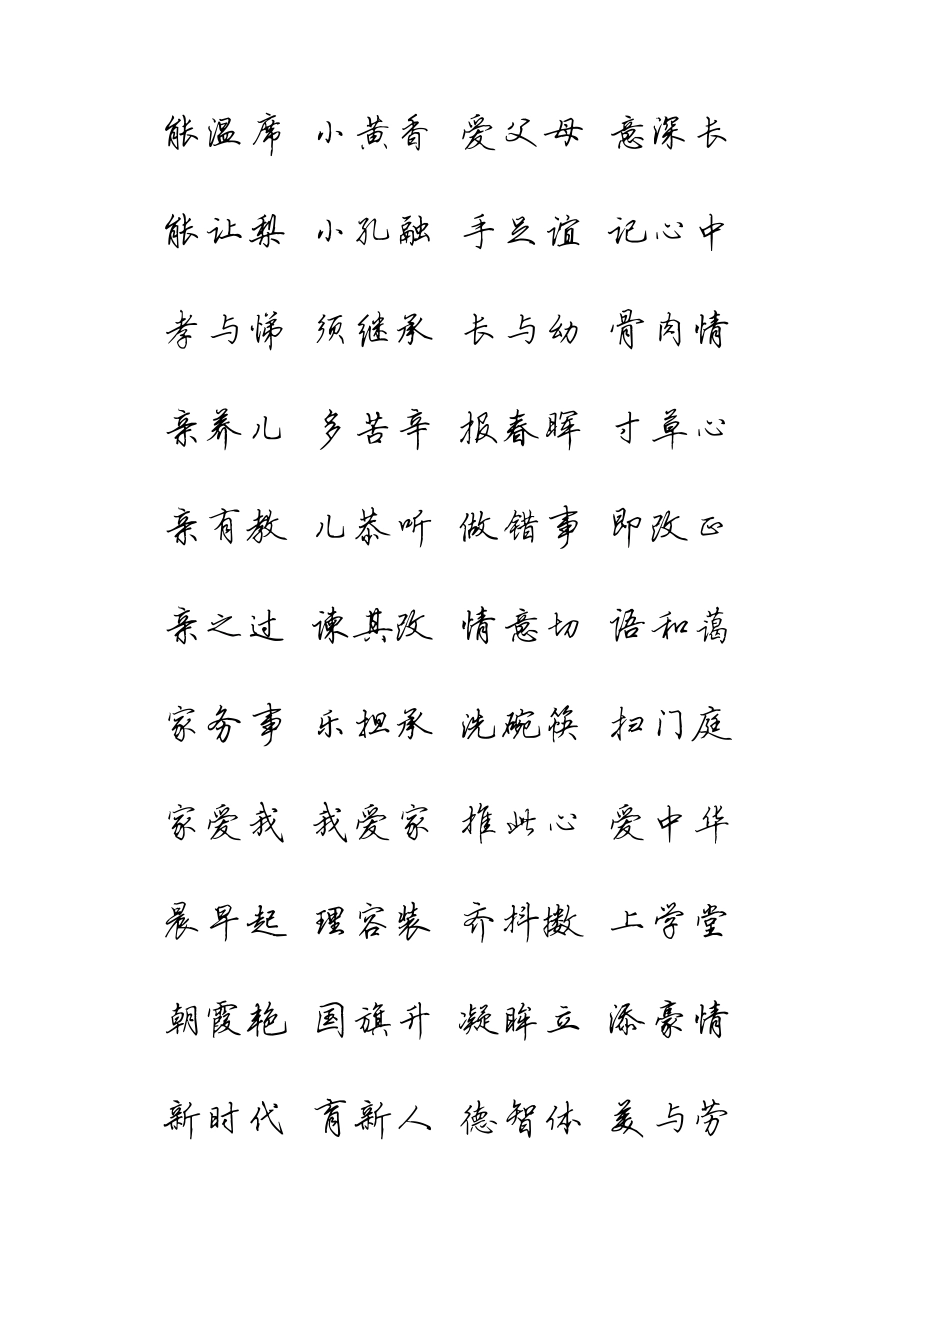 能温席 小黄香 爱父母 意深长
能让梨 小孔融 手足谊 记心中
孝与悌 须继承 长与幼 骨肉情
亲养儿 多苦辛 报春晖 寸草心
亲有教 儿恭听 做错事 即改正
亲之过 谏其改 情意切 语和蔼
家务事 乐担承 洗碗筷 扫门庭
家爱我 我爱家 推此心 爱中华
晨早起 理容装 齐抖擞 上学堂
朝霞艳 国旗升 凝眸立 添豪情
新时代 育新人 德智体 美与劳